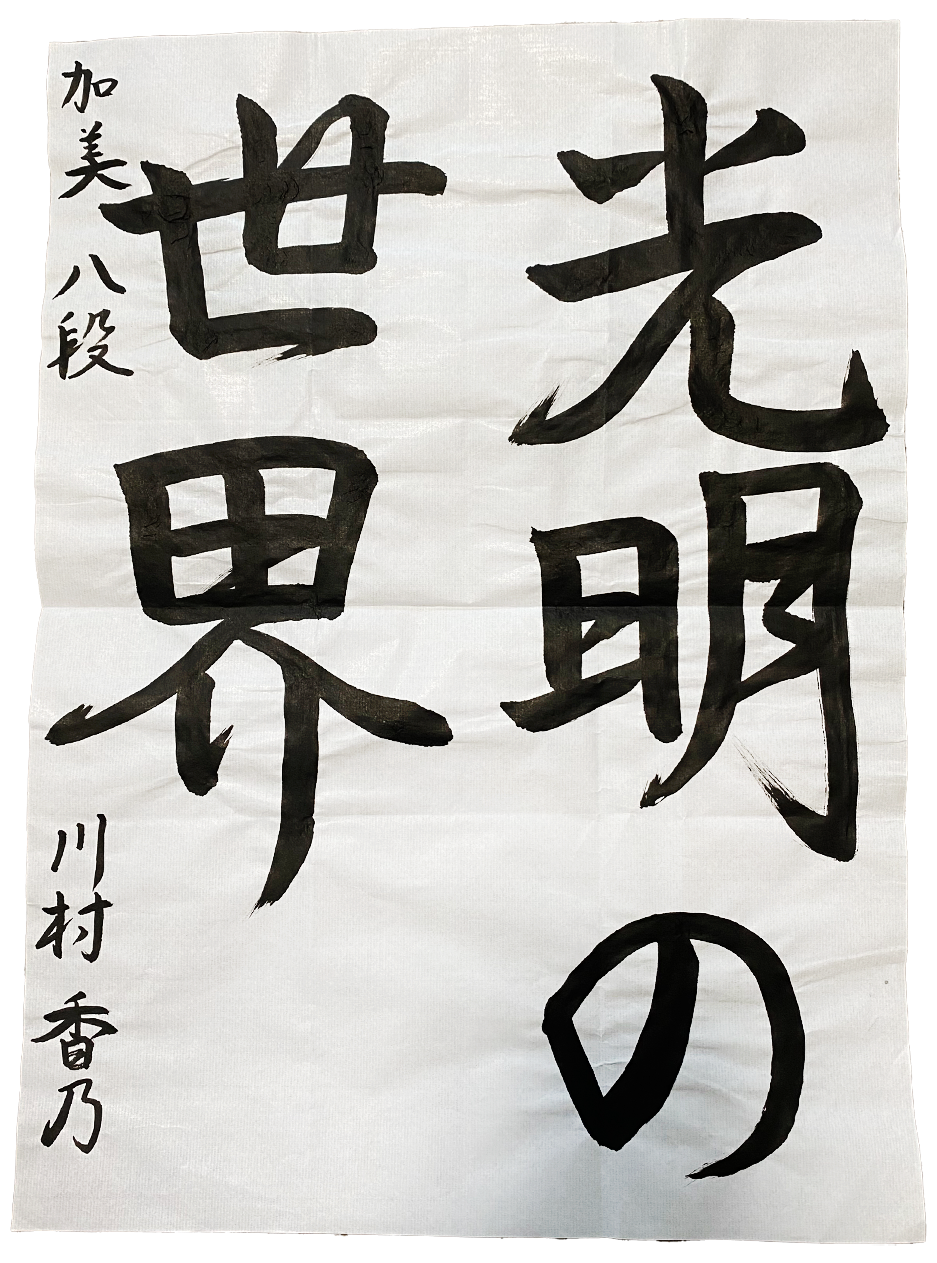 光明の
世界
加美 八段 川村 香乃